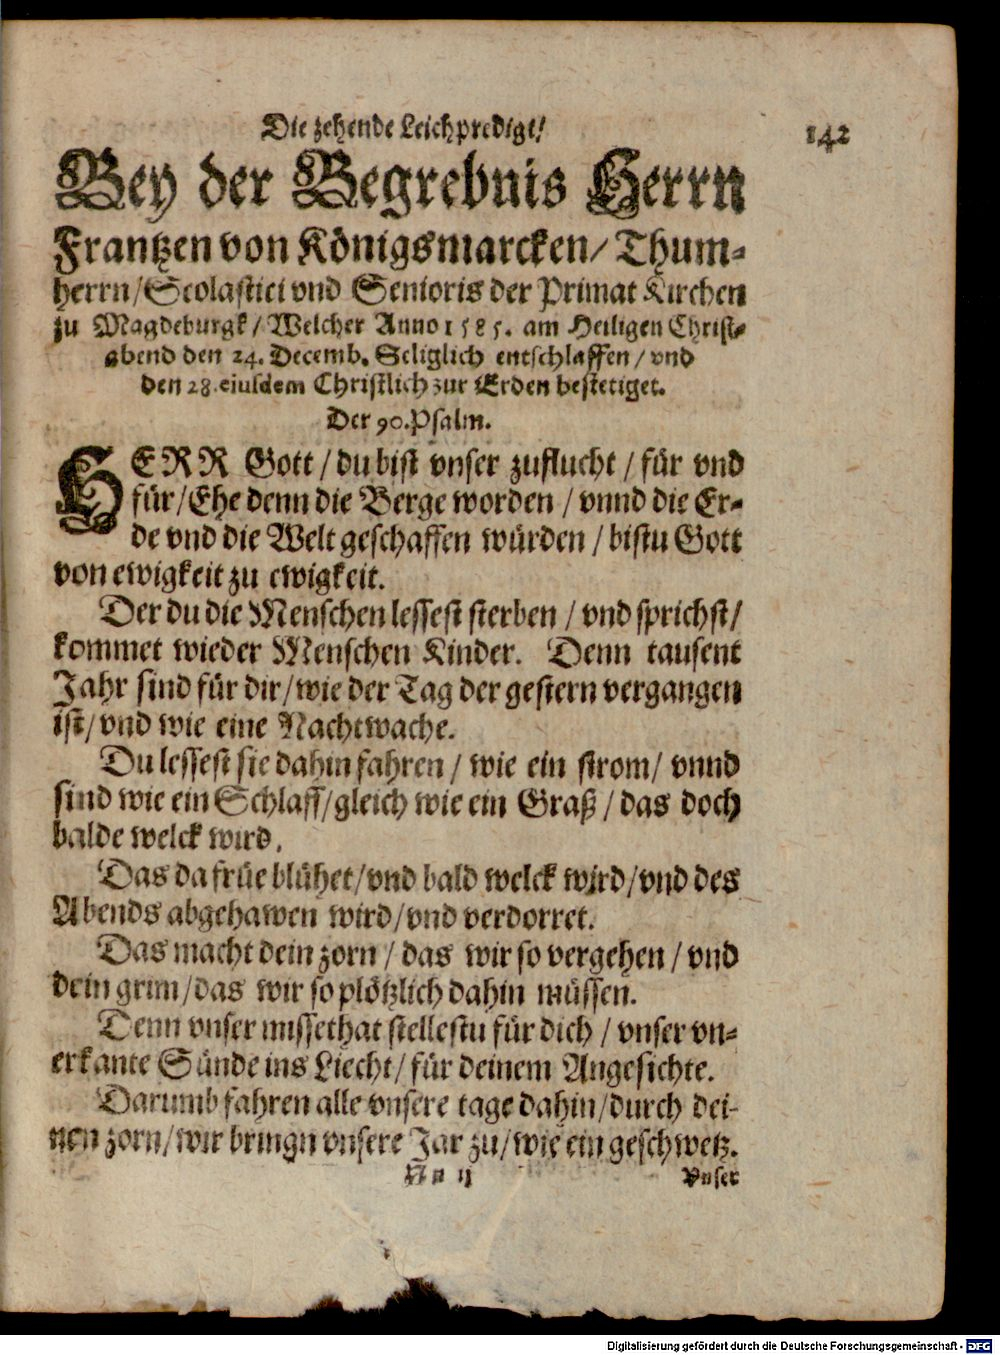 Die zehende Leichpredigt/
142
Bey der Begrebnis Herrn
Frantzen von Königsmarcken/ Thum-
herrn/ Scolastici vnd Senioris der Primat Kirchen
zu Magdeburgk/ Welcher Anno 1585. am Heiligen Christ-
abend den 24. Decemb. Seliglich entschlaffen/ vnd
den 28. eiusdem Christlich zur Erden bestetiget.
Der 90. Psalm.
HERR Gott/ du bist vnser zuflucht/ für vnd
für/ Ehe denn die Berge worden/ vnnd die Er-
de vnd die Welt geschaffen würden/ bistu Gott
von ewigkeit zu ewigkeit.
Der du die Menschen lessest sterben/ vnd sprichst/
kommet wieder Menschen Kinder. Denn tausent
Jahr sind für dir/ wie der Tag der gestern vergangen
ist/ vnd wie eine Nachtwache.
Du lessest sie dahin fahren/ wie ein strom/ vnnd
sind wie ein Schlaff/ gleich wie ein Graß/ das doch
balde welck wird.
Das da früe blühet/ vnd bald welck wird/ vnd des
Abends abgehawen wird/ vnd verdorret.
Das macht dein zorn/ das wir so vergehen/ vnd
dein grim/ das wir so plötzlich dahin müssen.
Denn vnser missethat stellestu für dich/ vnser vn-
erkante Sünde ins Liecht/ für deinem Angesichte.
Darumb fahren alle vnsere tage dahin/ durch dei-
nen zorn/ wir bringn vnsere Jar zu/ wie ein geschwetz.
N n ij
Vnser
Digitalisierung gefördert durch die Deutsche Forschungsgemeinschaft - DFG